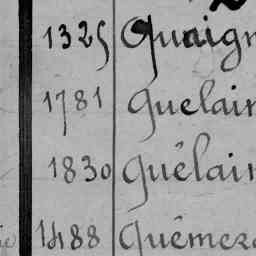 1325 Quaign
1781 Quelain
1830 Quêlain
1488 Quêmer